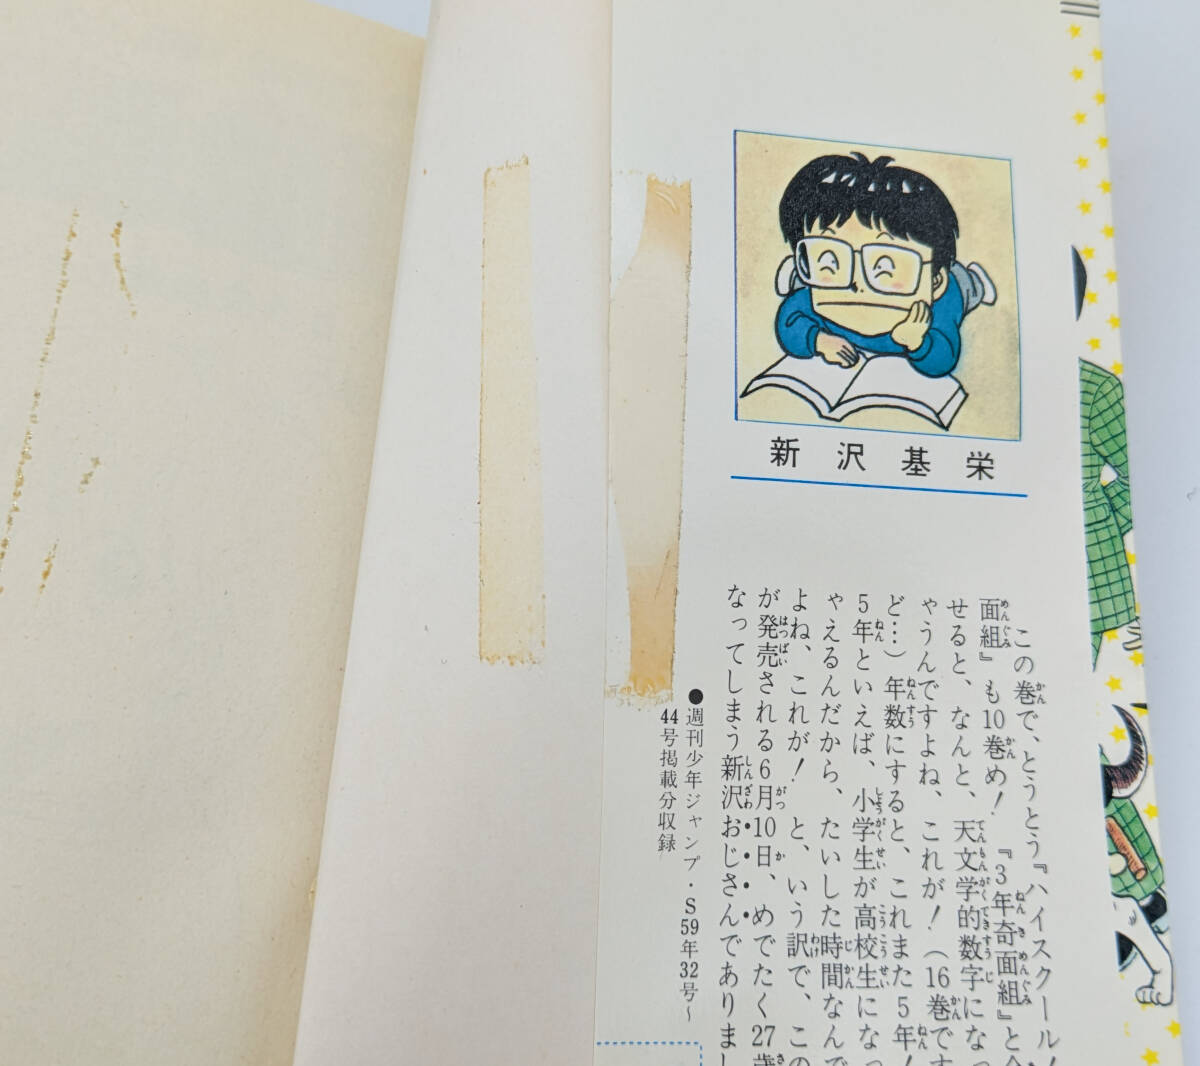 新沢基栄
この巻で、とうとう『ハイスクール!
面組』も10巻め!『3年奇面組』と合
せると、なんと、天文学的数字になっ
ゃうんですよね、これが!(16巻です
ど…)年数にすると、これまた5年!
5年といえば、小学生が高校生になっ
ゃえるんだから、たいした時間なんで
よね、これが! と、いう訳で、この
が発売される6月10日、めでたく27歳
なってしまう新沢おじさんでありまし
●週刊少年ジャンプ・S59年32号~
44号掲載分収録